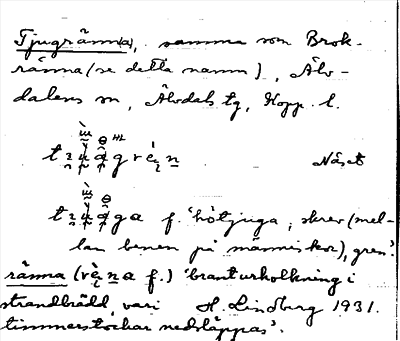 Tjugränn(a), samma som Brok-
ränna (se detta namn), Älv-
dalens sn, Älvdals tg, Kopp. l.
Näset
f. 'hötjuga; skrev (mel-
lan benen på människor), gren'.
ränna f.) 'brant urholkning i
strandbrädd, vari H. Lindberg 1931.
timmerstockar nedsläppas'.